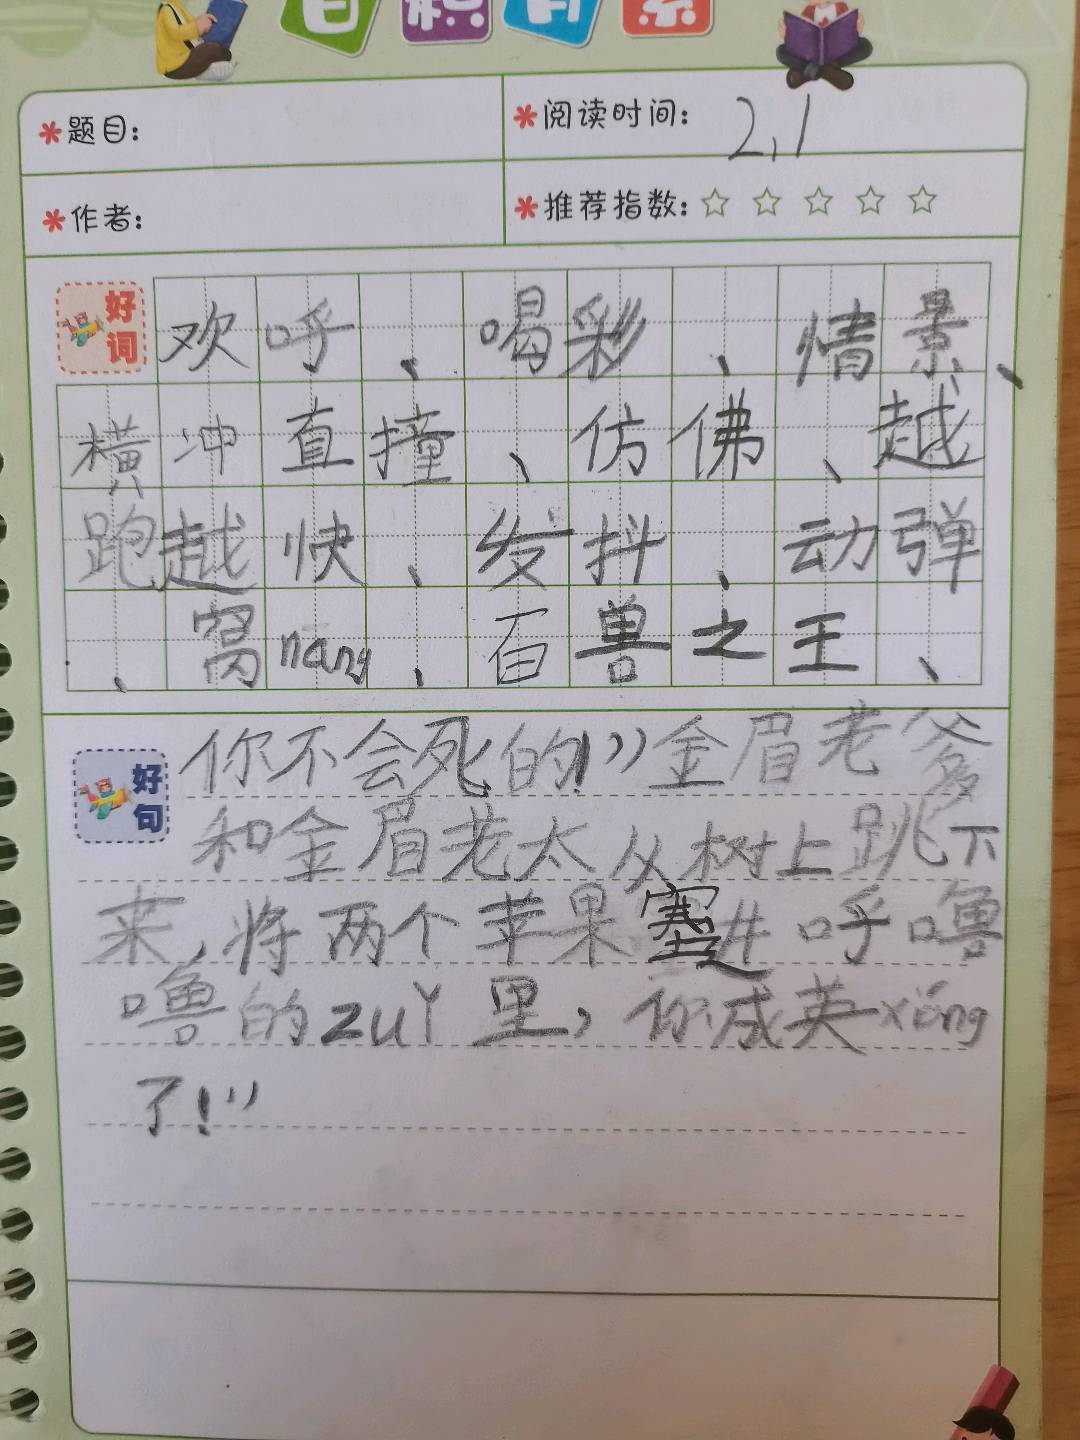 日积月累
*题目：
*阅读时间： 2,1
*作者：
*推荐指数：☆☆☆☆☆
好词
欢呼、喝彩、情景、
横冲直撞、仿佛、越
跑越快、发抖、动弹
、窝nang、百兽之王、
好句
你不会死的!”金眉老爷
和金眉老太从树上跳下
来,将两个苹果塞进呼噜
噜的zuǐ里,你成英xióng
了!”